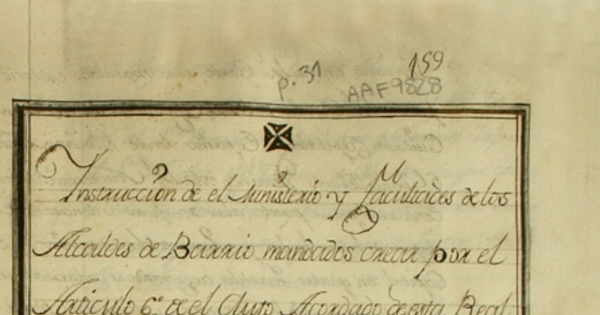 159
p. 31
AAF9828
Instruccion de el Ministerio y Facultades de los
Alcaldes de Barrio mandados crear por el
Articulo 6º de el Auto Acordado de esta Real